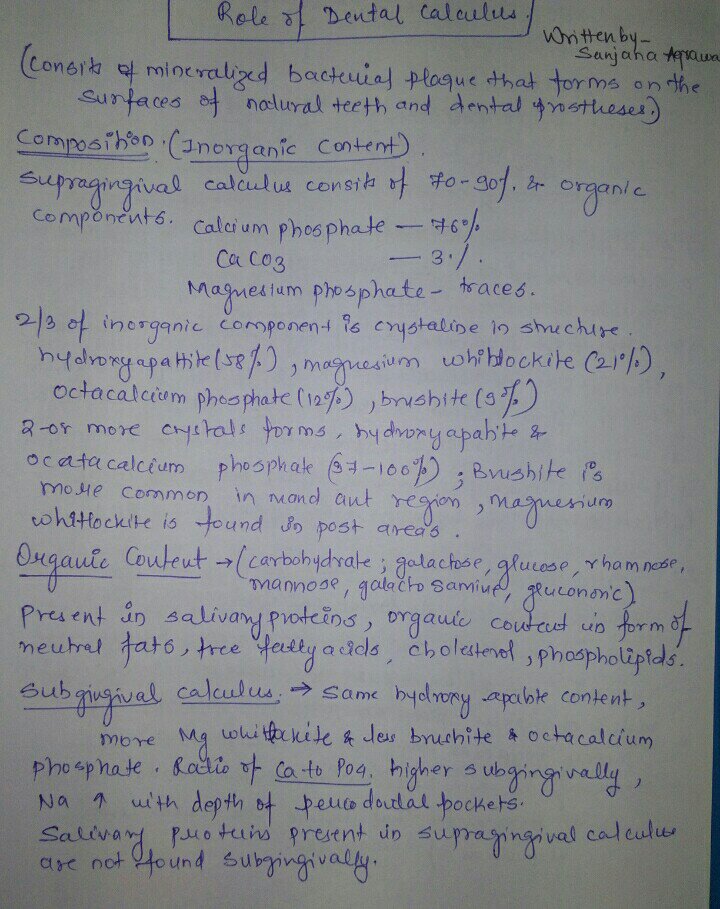 Role of Dental Calculus.
Written by -
Sanjana Agrawa
(Consits of mineralized bacterial plaque that forms on the
surfaces of natural teeth and dental prostheses.)
Composition. (Inorganic Content).
Supragingival calculus consits of 70-90%. & organic
components. Calcium phosphate — 76%
CaCO3 — 3%.
Magnesium phosphate - traces.
2/3 of inorganic component is crystaline in structure.
hydroxyapattite (58%), magnesium whitlockite (21%),
octacalcium phosphate (12%), brushite (9%)
2-or more crystals forms, hydroxyapatite &
ocatacalcium phosphate (97-100%); Brushite is
more common in mand ant region, magnesium
whittockite is found in post areas.
Organic Content → (carbohydrate; galactose, glucose, rhamnose,
mannose, galacto samine, gluconoric)
Present in salivary proteins, organic content in form of
neutral fats, free fatty acids, cholesterol, phospholipids.
Subgingival calculus. → Same hydroxy apatite content,
more Mg whittakite & less brushite & octacalcium
phosphate. Ratio of Ca to PO4. higher subgingivally,
Na ↑ with depth of periodontal pockets.
Salivary proteins present in supragingival calculus
are not found subgingivally.